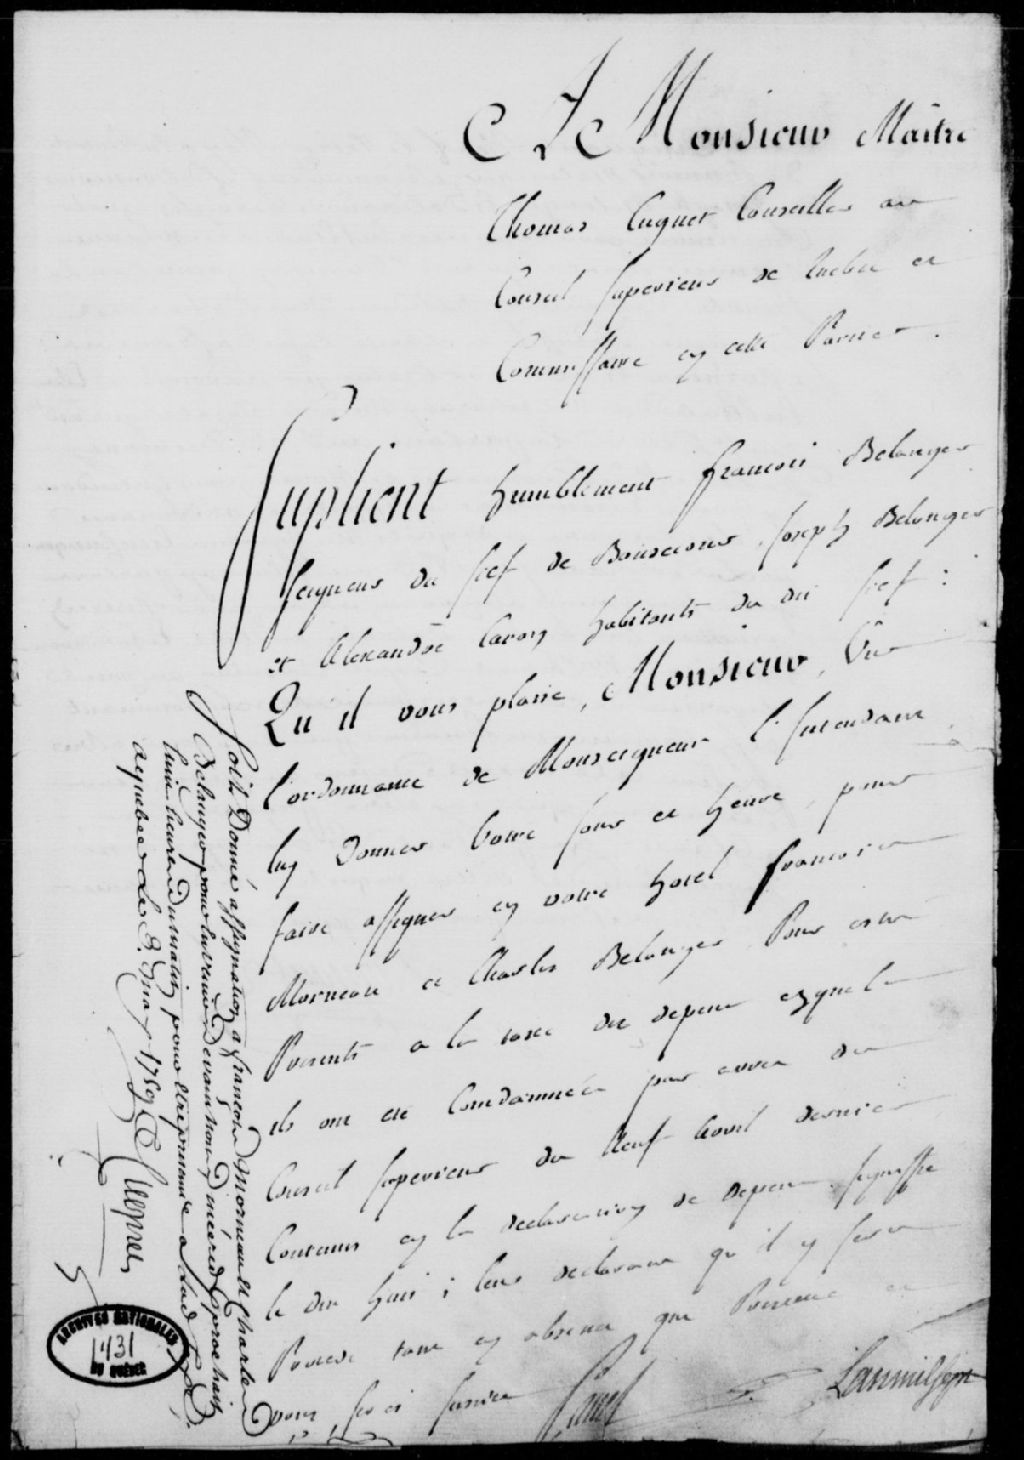 A Monsieur Maitre
Thomas Cugnet Conseiller au
Conseil superieur de Quebec et
Commissaire en cette Partie.
Suplient humblement francois Belanger
seigneur du fief de Bonsecours, Joseph Belanger
et Alexandre Cavon habitants du dit fief :
Qu'il vous plaise, Monsieur, Vu
l'ordonnance de Monseigneur l'Intendant
luy Donner Votre jour et heure, pour
faire assigner en votre hotel francois
Morneau et Charles Belanger Pour estre
Presents a la taxe des depens esquels
ils ont été Condamnés par arret du
Conseil superieur du Neuf Avril dernier
Contenus en la declaration de depens signiffié
le dix huit ; leur declarant qu'il y sera
Procedé tant en absence que Presence et
vous ferés justice
Lanouillier
Soit Donné assignation a françois Morneau et Charles
Belanger pour devant Nous Mercredi prochain
huit heures du matin pour être present a la de taxe,
a quebec Le 8. may 1750
Cugnet
ARCHIVES NATIONALES
1431
DU QUÉBEC